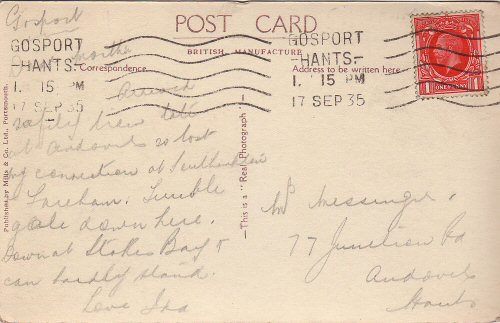 Gosport
POST CARD
BRITISH MANUFACTURE
GOSPORT
HANTS
1. 15 PM
17 SEP 35
GOSPORT
HANTS
1. 15 PM
17 SEP 35
Correspondence
Address to be written here
1 ONE PENNY 1
Published by Mills & Co. Ltd., Portsmouth.
This is a "Real Photograph"
Arrived
safely train late
at Andover so lost
my connection at
Fareham. Terrible
gale down here.
Down at Stokes Bay &
can hardly stand.
Love Ida
Mrs Messenger.
77 Junction Rd
Andover
Hants